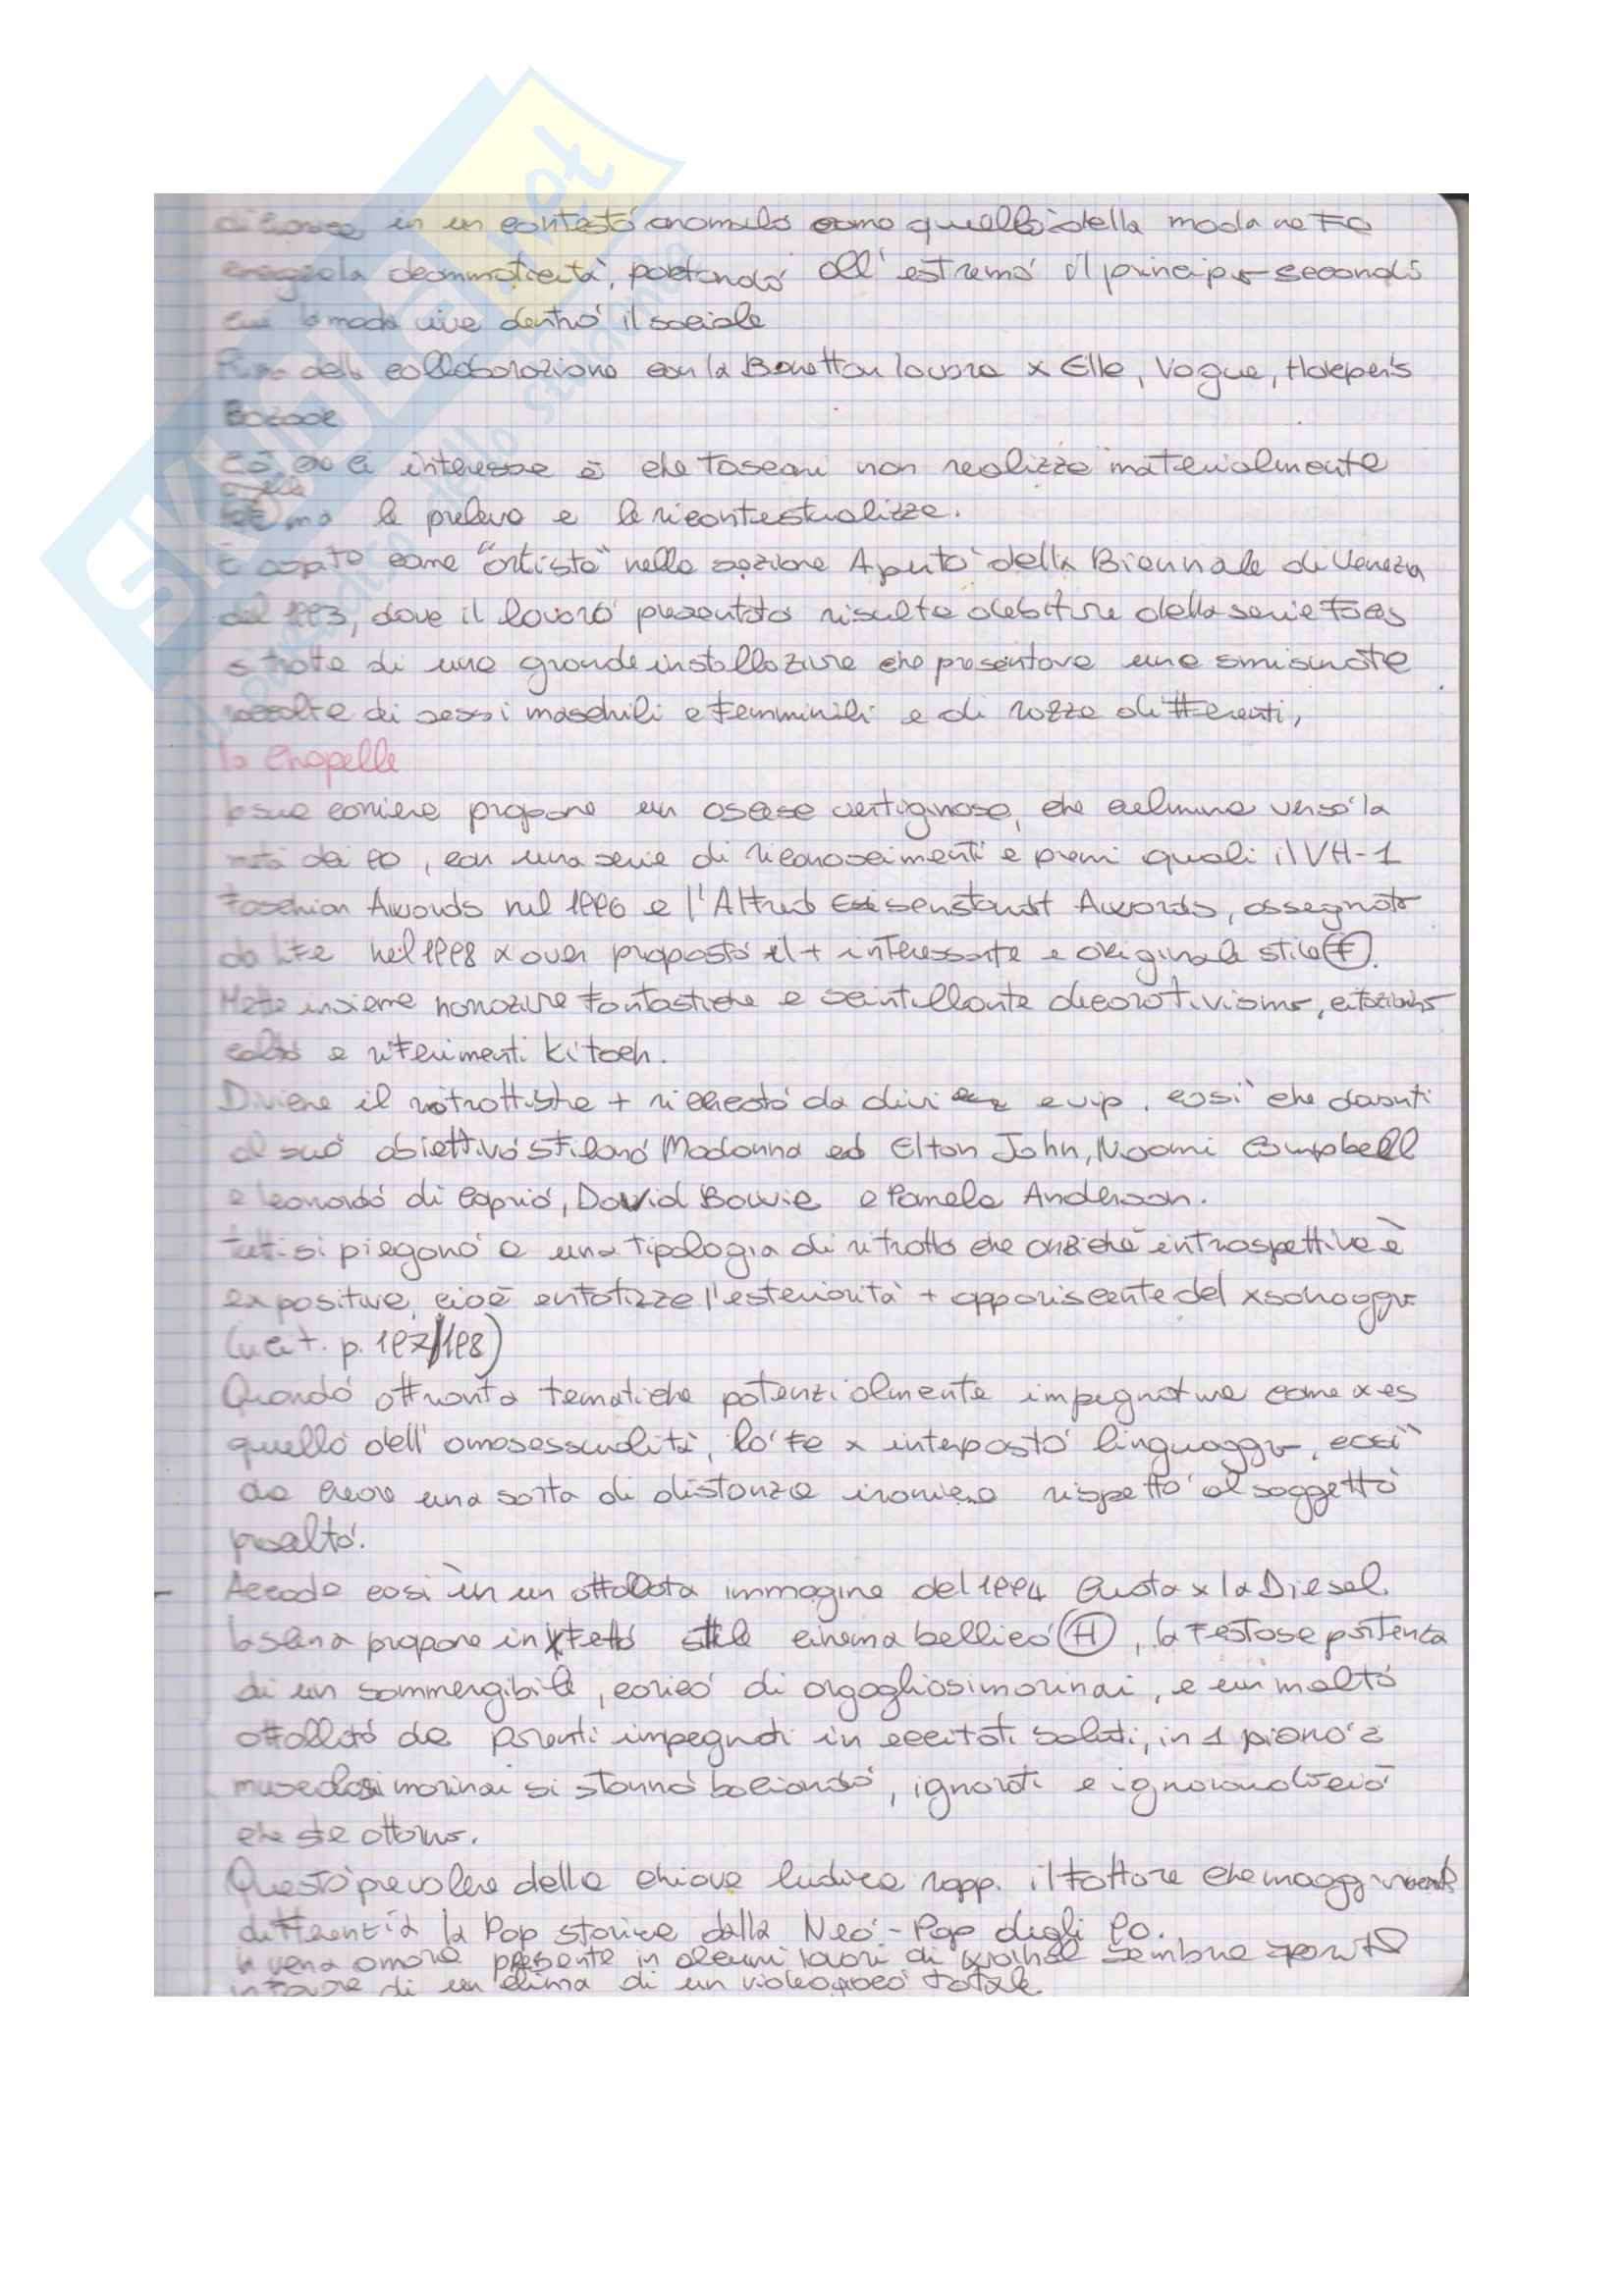 in un contesto anomalo come quello della moda ne fa
la drammaticità, portando all'estremo il principio secondo
cui la moda vive dentro il sociale
Prima della collaborazione con la Benetton lavora x Elle, Vogue, Harper's
Bazaar
Ciò che ci interessa è che Toscani non realizza materialmente
ma le preleva e le ricontestualizza.
È ospite come "artista" nella sezione Aperto della Biennale di Venezia
del 1993, dove il lavoro presentato risulta debitore della serie Faces
si tratta di una grande installazione che presentava una smisurata
raccolta di sessi maschili e femminili e di razze differenti,
la Chapelle
la sua carriera propone un ascesa vertiginosa, che culmina verso la
metà dei 90, con una serie di riconoscimenti e premi quali il VH-1
Faschion Awards nel 1996 e l'Alfred Eisenstandt Awards, assegnato
da Life nel 1998 x aver proposto il + interessante e originale stile (F).
Mette insieme narrazione fantastiche e scintillante decorativismo, citazioni
colte e riferimenti kitsch.
Diviene il ritrattista + richiesto da divi e vip, così che davanti
al suo obiettivo sfilano Madonna ed Elton John, Naomi Campbell
e Leonardo di Caprio, David Bowie e Pamela Anderson.
Tutti si piegano a una tipologia di ritratto che anziché introspettiva è
expositive, cioè enfatizza l'esteriorità + appariscente del xsonaggio
p. 197/198)
Quando affronta tematiche potenzialmente impegnative come x es
quello dell'omosessualità, lo fa x interposto linguaggio, così
da creare una sorta di distanza ironica rispetto al soggetto
prescelto.
- Accade così in un affollata immagine del 1994 creata x la Diesel.
la scena propone in xfetto stile cinema bellico (H), la festosa partenza
di un sommergibile, carico di orgogliosi marinai, e un molto
affollato da parenti impegnati in eccitati saluti, in 1 piano 2
muscolosi marinai si stanno baciando, ignorati e ignorando ciò
che sta attorno.
Questo prevalere della chiave ludica rapp. il fattore che maggiormente
differenzia la Pop storica dalla Neo-Pop degli 90.
la vena amara presente in alcuni lavori di Warhol sembra sparita
in favore di un clima di un videogioco totale